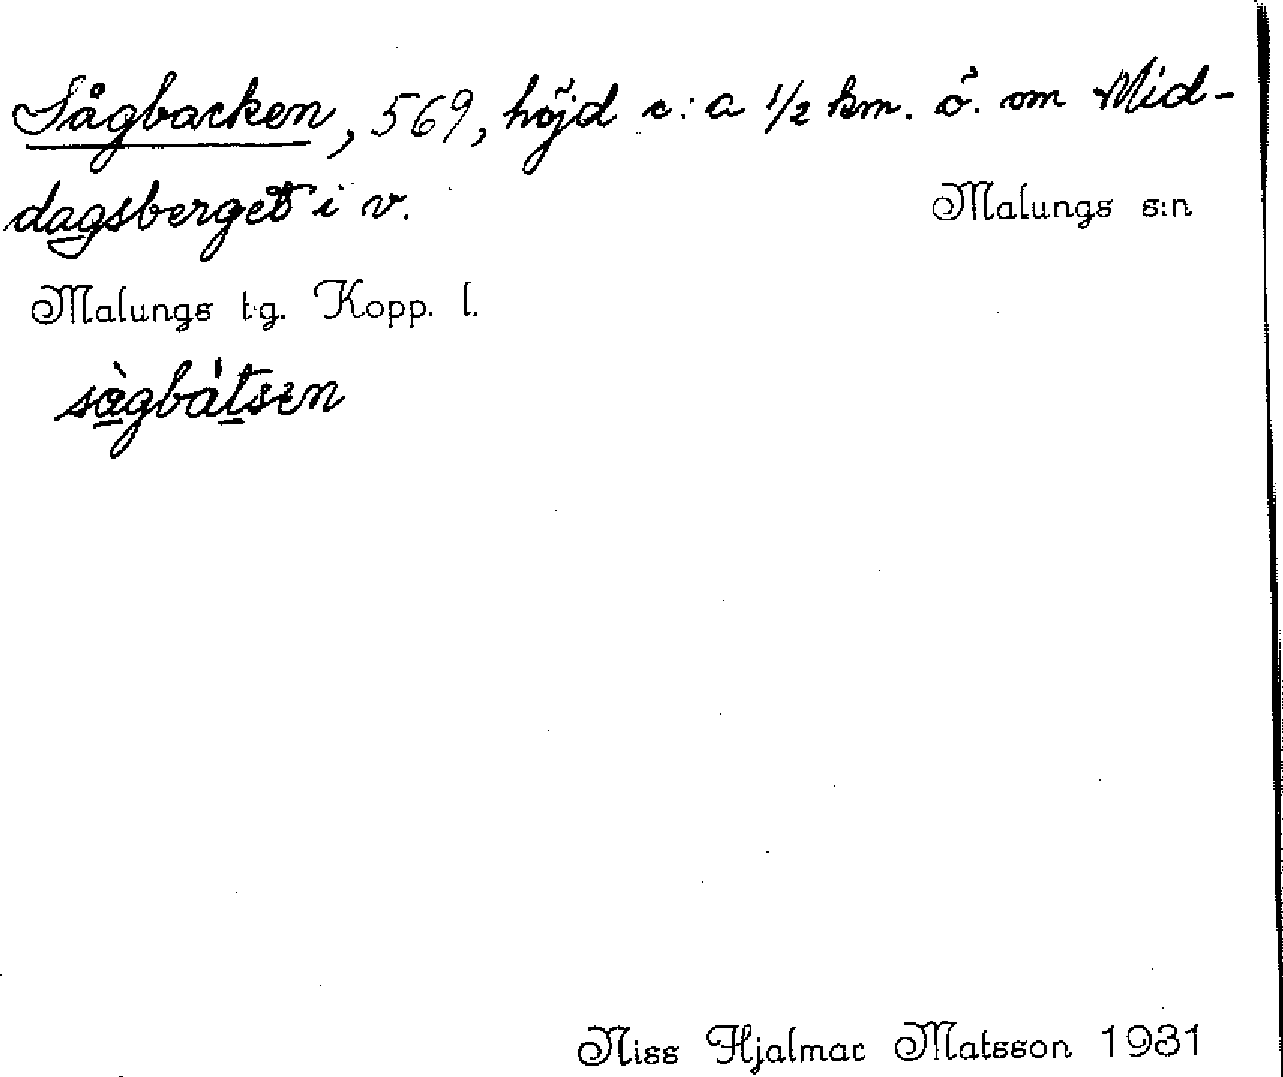 Sågbacken, 569, höjd c:a 1/2 km. ö. om Mid-
dagsberget i v.
Malungs s:n
Malungs tg. Kopp. l.
sàgbátsen
Niss Hjalmar Matsson 1931